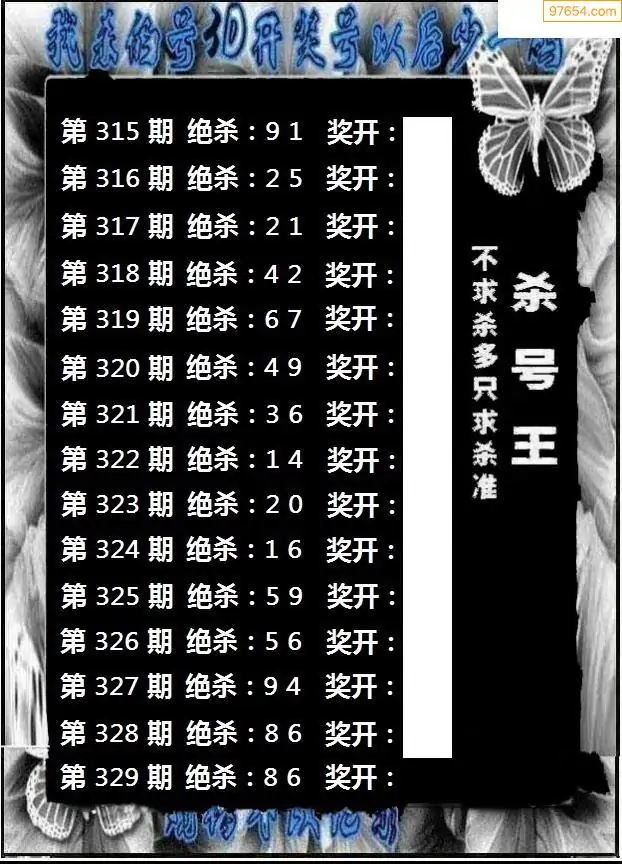 97654.com
我杀的号3D开奖号以后少
第 315 期 绝杀：9 1 奖开：
第 316 期 绝杀：2 5 奖开：
第 317 期 绝杀：2 1 奖开：
第 318 期 绝杀：4 2 奖开：
第 319 期 绝杀：6 7 奖开：
第 320 期 绝杀：4 9 奖开：
第 321 期 绝杀：3 6 奖开：
第 322 期 绝杀：1 4 奖开：
第 323 期 绝杀：2 0 奖开：
第 324 期 绝杀：1 6 奖开：
第 325 期 绝杀：5 9 奖开：
第 326 期 绝杀：5 6 奖开：
第 327 期 绝杀：9 4 奖开：
第 328 期 绝杀：8 6 奖开：
第 329 期 绝杀：8 6 奖开：
杀号王
不求杀多只求杀准